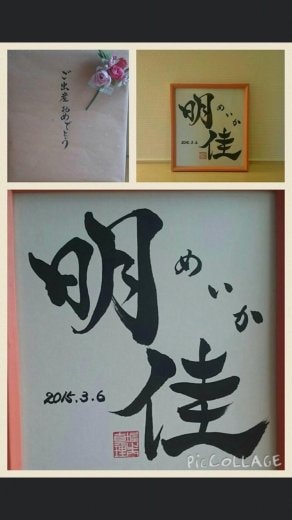 ご出産おめでとう
明佳
めいか
2015.3.6
明佳
めいか
2015.3.6
PIC COLLAGE